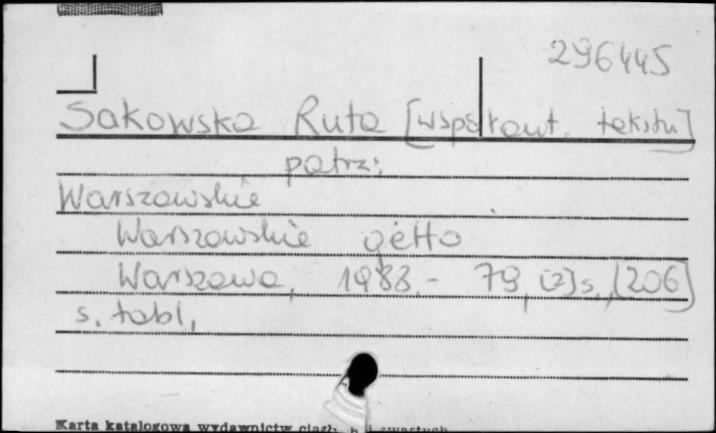 296445
Sakowska Ruta [współaut. tekstu]
patrz:
Warszawskie
Warszawskie getto
Warszawa, 1988.- 79, [2] s., [206]
s. tabl.
Karta katalogowa wydawnictw ciągł. i zwartych